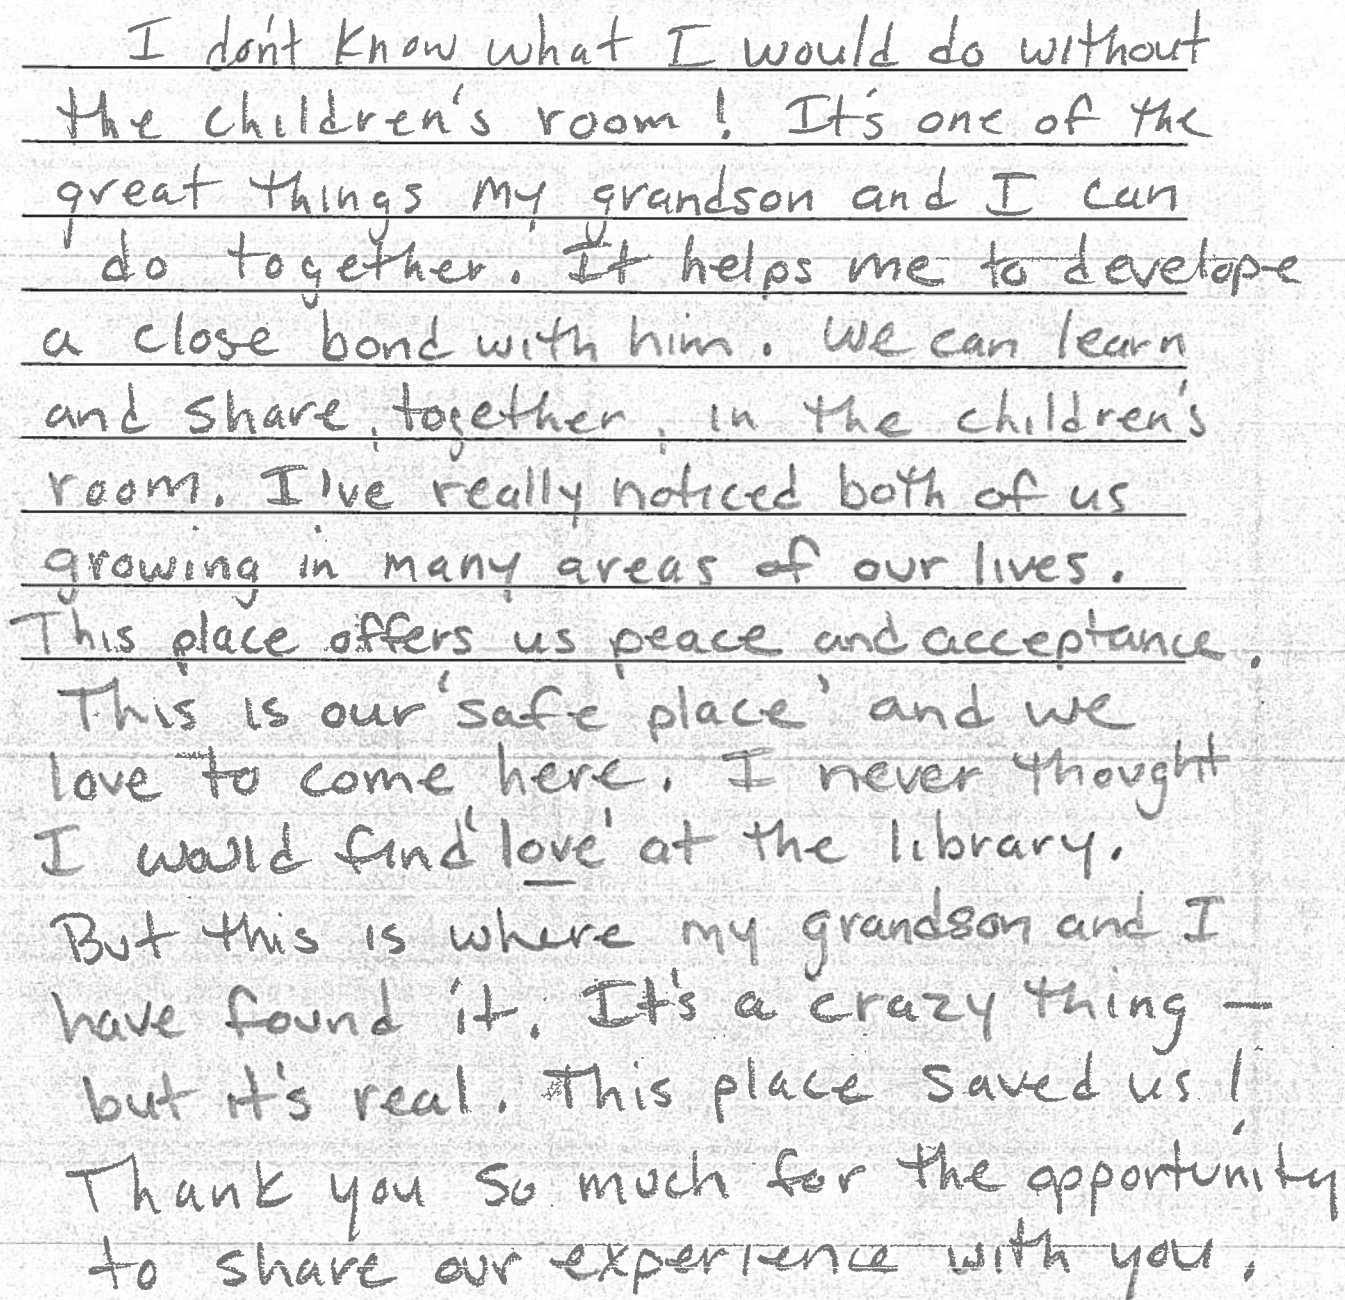 I don't know what I would do without
the children's room! It's one of the
great things my grandson and I can
do together. It helps me to develope
a close bond with him. We can learn
and share, together, in the children's
room. I've really noticed both of us
growing in many areas of our lives.
This place offers us peace and acceptance.
This is our 'safe place' and we
love to come here. I never thought
I would find 'love' at the library.
But this is where my grandson and I
have found it. It's a crazy thing —
but it's real. This place saved us!
Thank you so much for the opportunity
to share our experience with you.